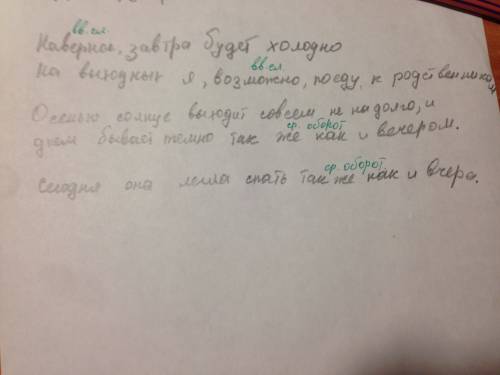 вв. сл.
Наверное, завтра будет холодно
вв. сл.
На выходных я, возможно, поеду к родственникам
Осенью солнце выходит совсем не на долго, и
ср. оборот
днем бывает темно так же как и вечером.
ср. оборот
Сегодня она легла спать так же как и вчера.